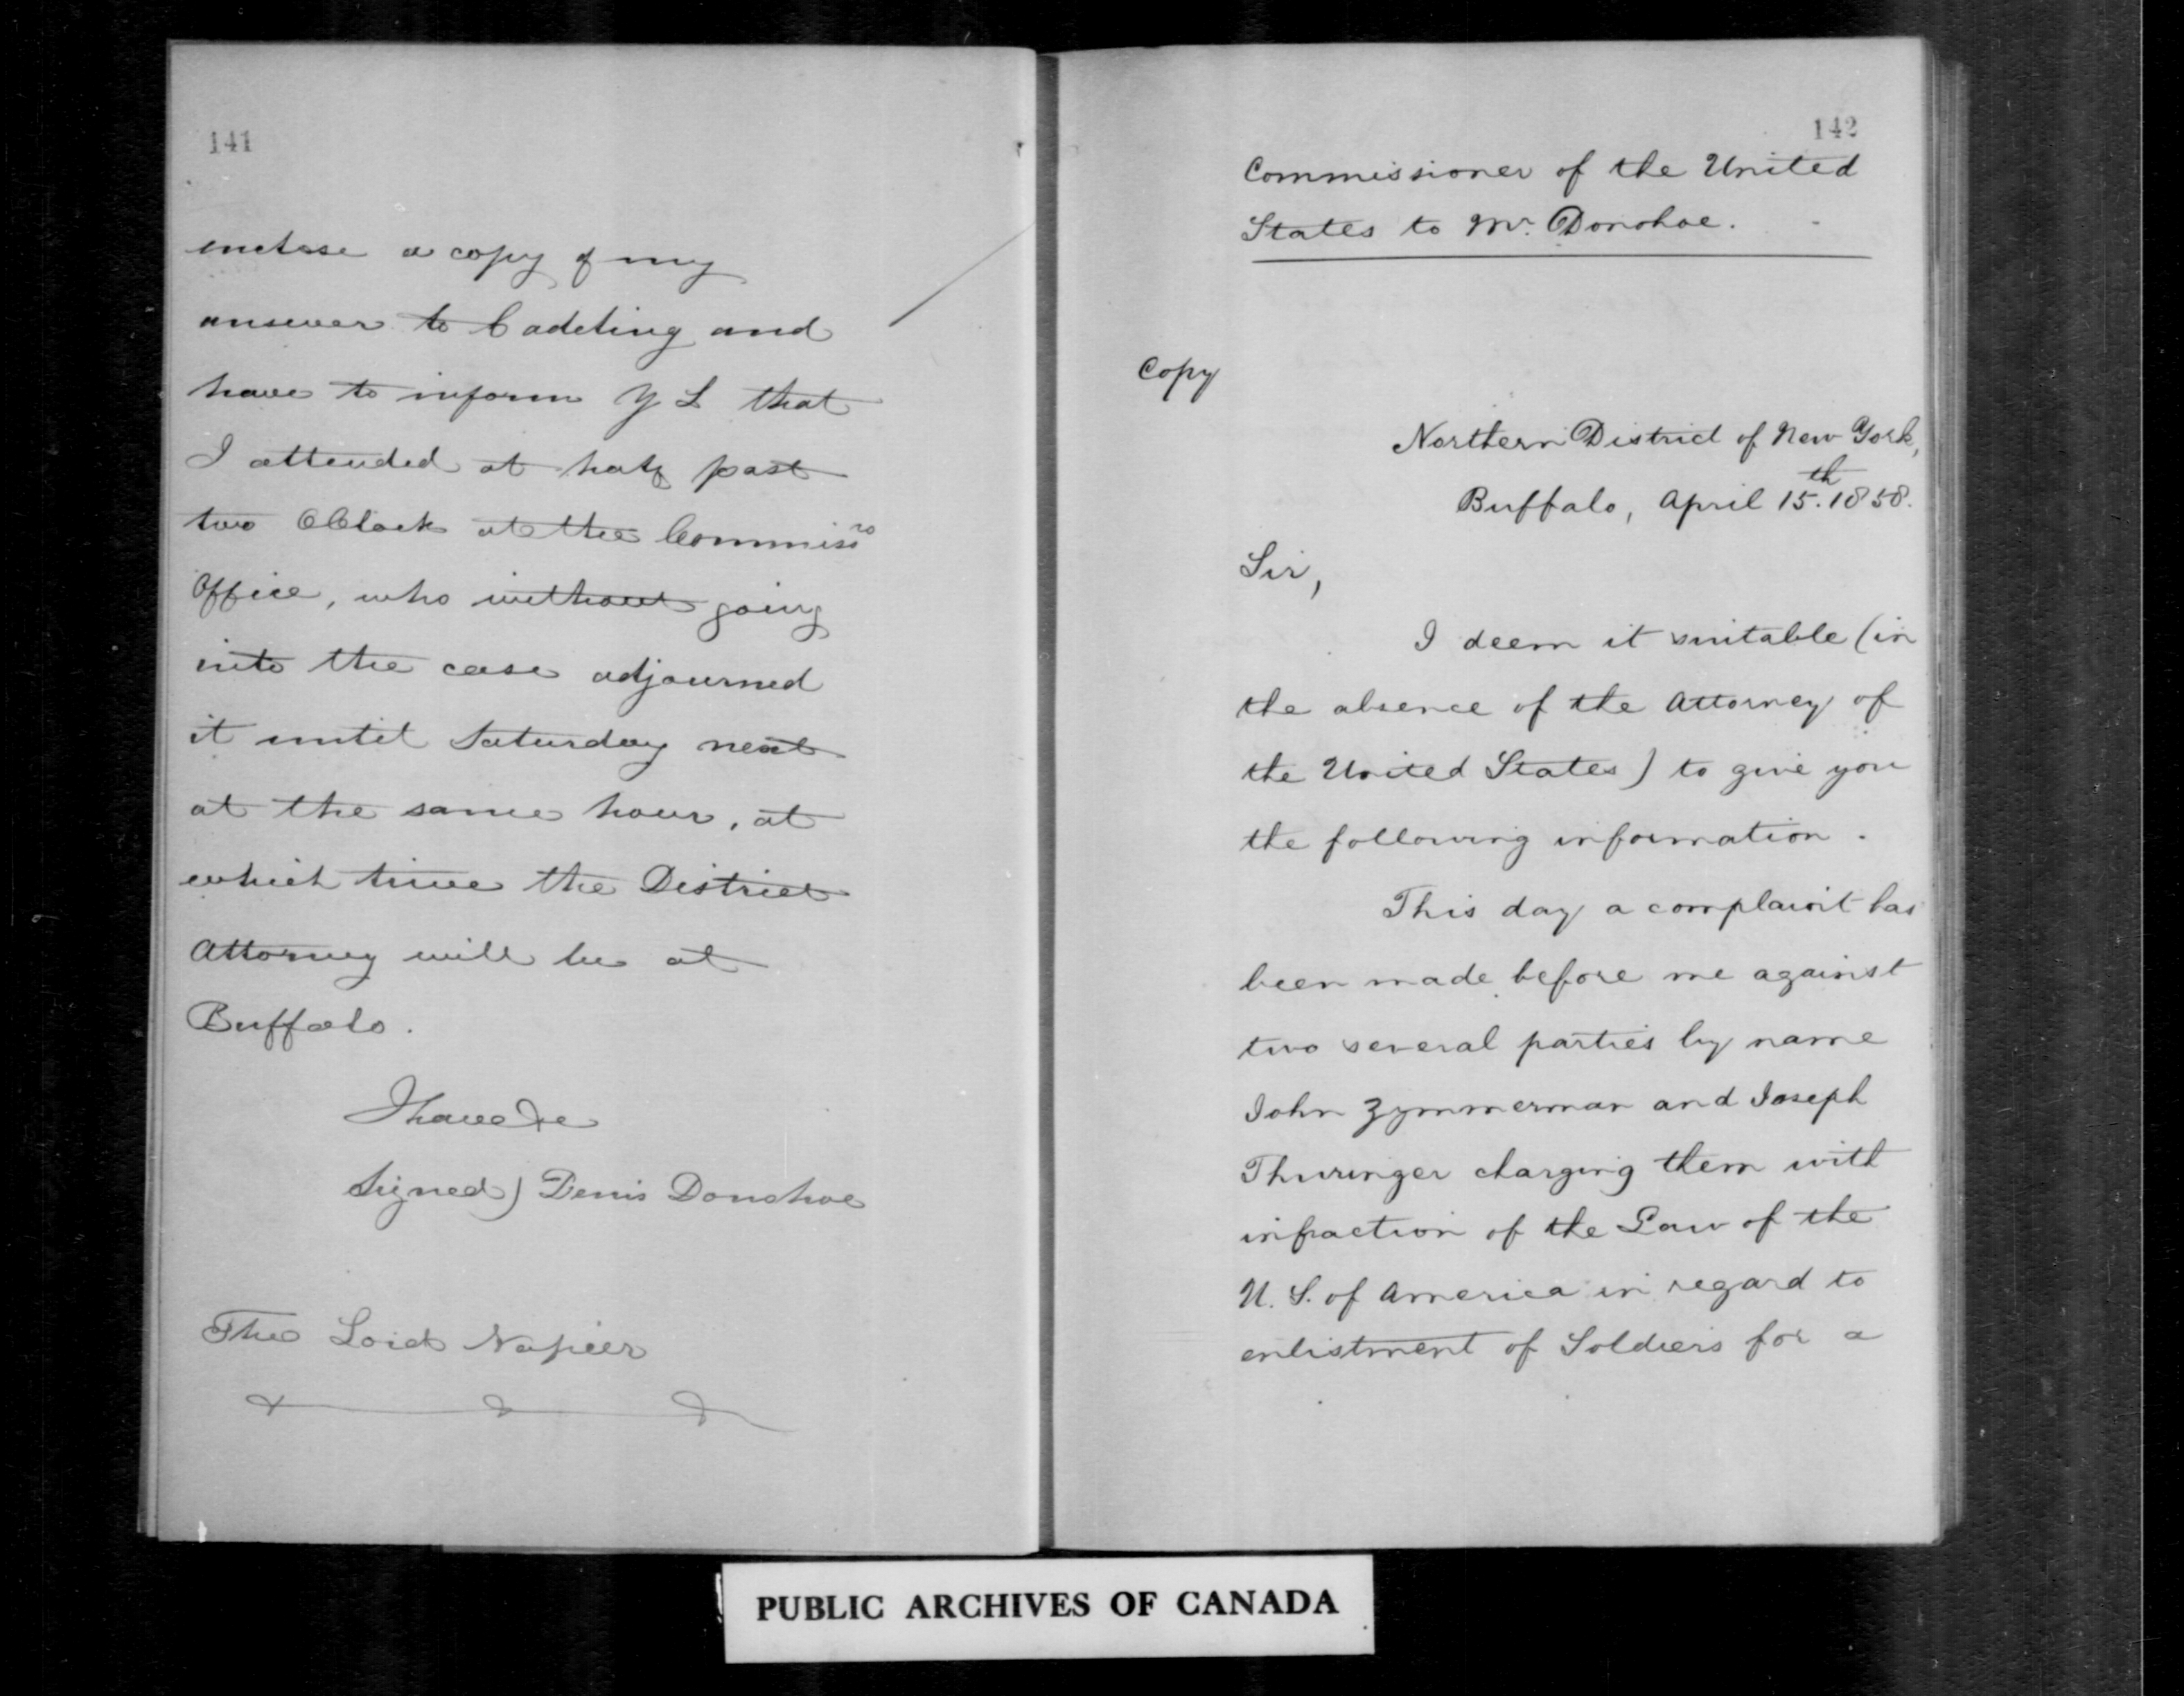 141
enclose a copy of my
answer to Cadeting and
have to inform Y L that
I attended at half past
two OClock at the Commissrs
Office, who without going
into the case adjourned
it until Saturday next
at the same hour, at
which time the District
Attorney will be at
Buffalo.
I have &c
Signed) Denis Donohoe
The Lord Napier
142
Commissioner of the United
States to Mr. Donohoe.
Copy
Northern District of New York,
Buffalo, April 15th. 1858.
Sir,
I deem it suitable (in
the absence of the Attorney of
the United States) to give you
the following information.
This day a complaint has
been made before me against
two several parties by name
John Zymmerman and Joseph
Thuringer charging them with
infraction of the Law of the
U. S. of America in regard to
enlistment of Soldiers for a
PUBLIC ARCHIVES OF CANADA